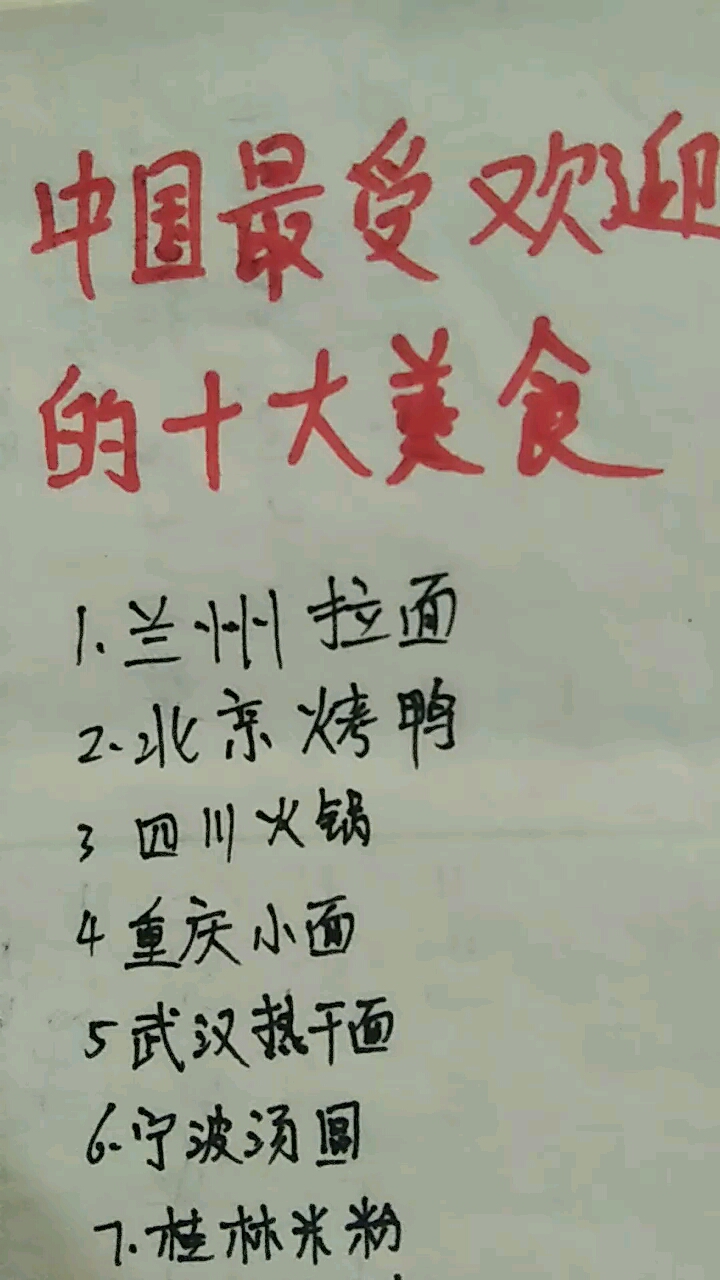 中国最受欢迎
的十大美食
1.兰州拉面
2.北京烤鸭
3 四川火锅
4 重庆小面
5 武汉热干面
6.宁波汤圆
7.桂林米粉